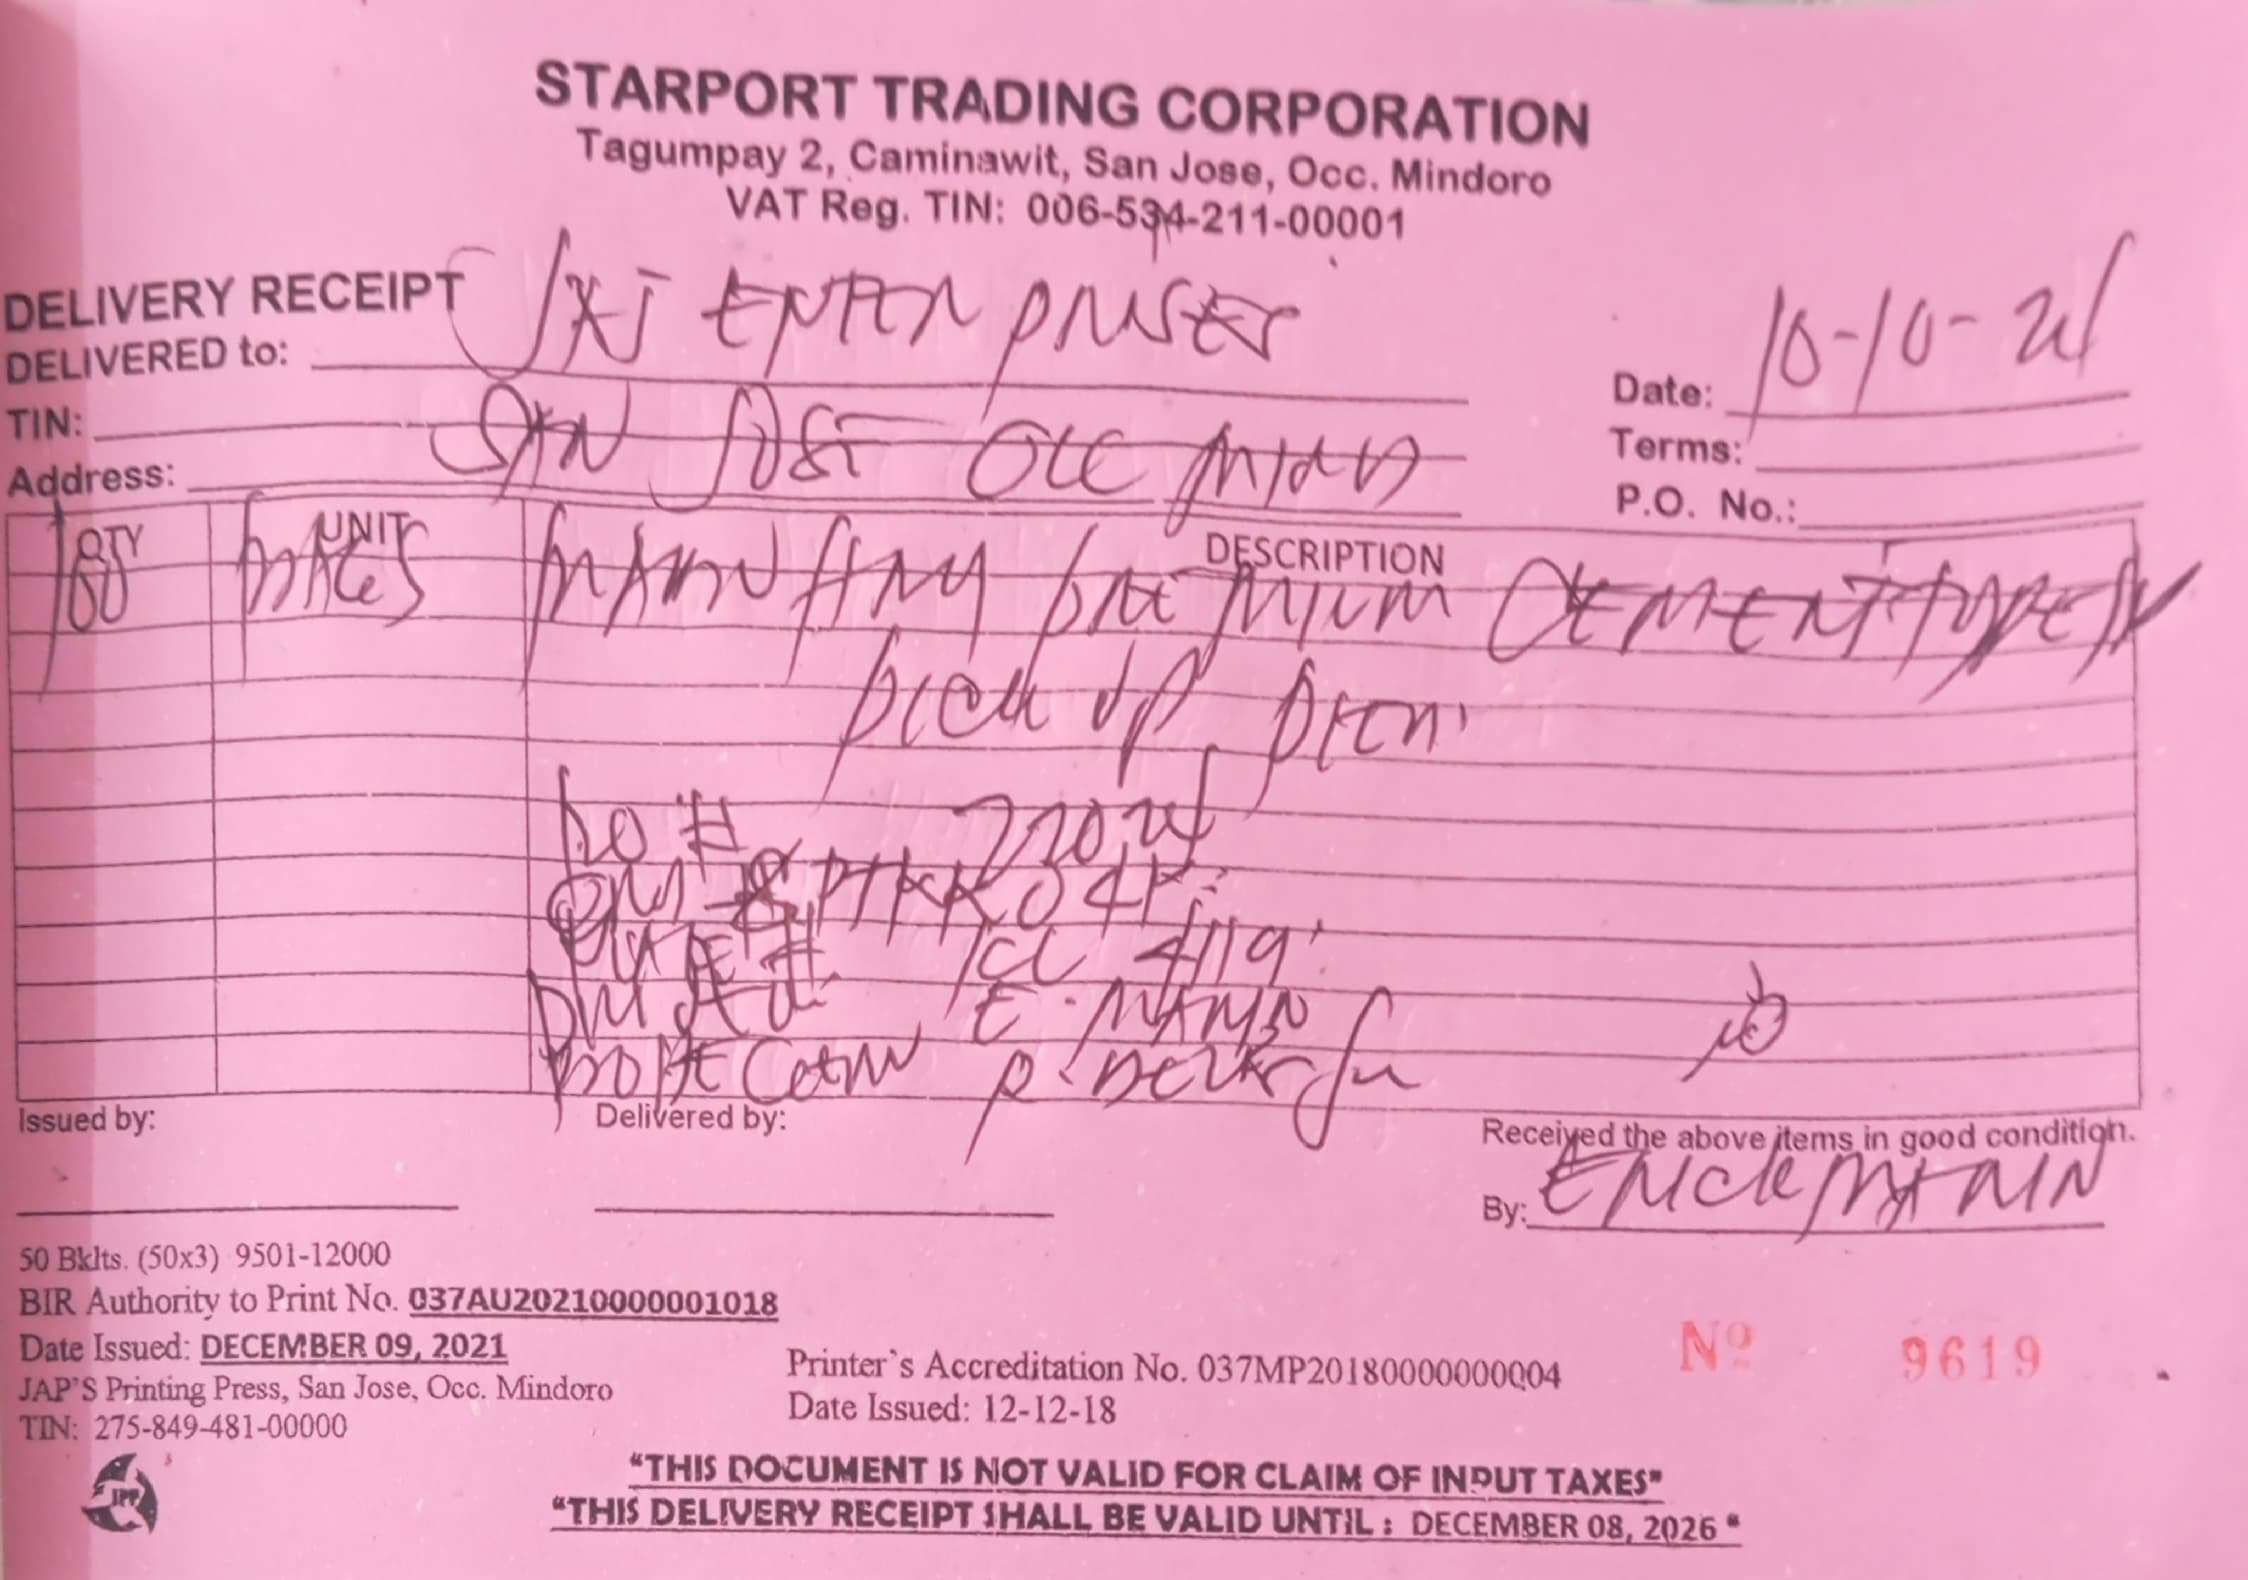 STARPORT TRADING CORPORATION
Tagumpay 2, Caminawit, San Jose, Occ. Mindoro
VAT Reg. TIN: 006-534-211-00001
DELIVERY RECEIPT
DELIVERED to: JXJ ENTERPRISES
Date: 10-10-24
TIN:
Terms:
Address: SAN JOSE OCC MIN
P.O. No.:
QTY UNIT DESCRIPTION
100 BAGS PREMIUM CEMENT TYPE
PICK UP
DO #
PLATE # 4119
E.
P.
Issued by:
Delivered by:
Received the above items in good condition.
By: ERICK
50 Bklts. (50x3) 9501-12000
BIR Authority to Print No. 037AU20210000001018
Date Issued: DECEMBER 09, 2021
JAP'S Printing Press, San Jose, Occ. Mindoro
TIN: 275-849-481-00000
Printer's Accreditation No. 037MP20180000000004
Date Issued: 12-12-18
Nº 9619
JPP
"THIS DOCUMENT IS NOT VALID FOR CLAIM OF INPUT TAXES"
"THIS DELIVERY RECEIPT SHALL BE VALID UNTIL : DECEMBER 08, 2026 "